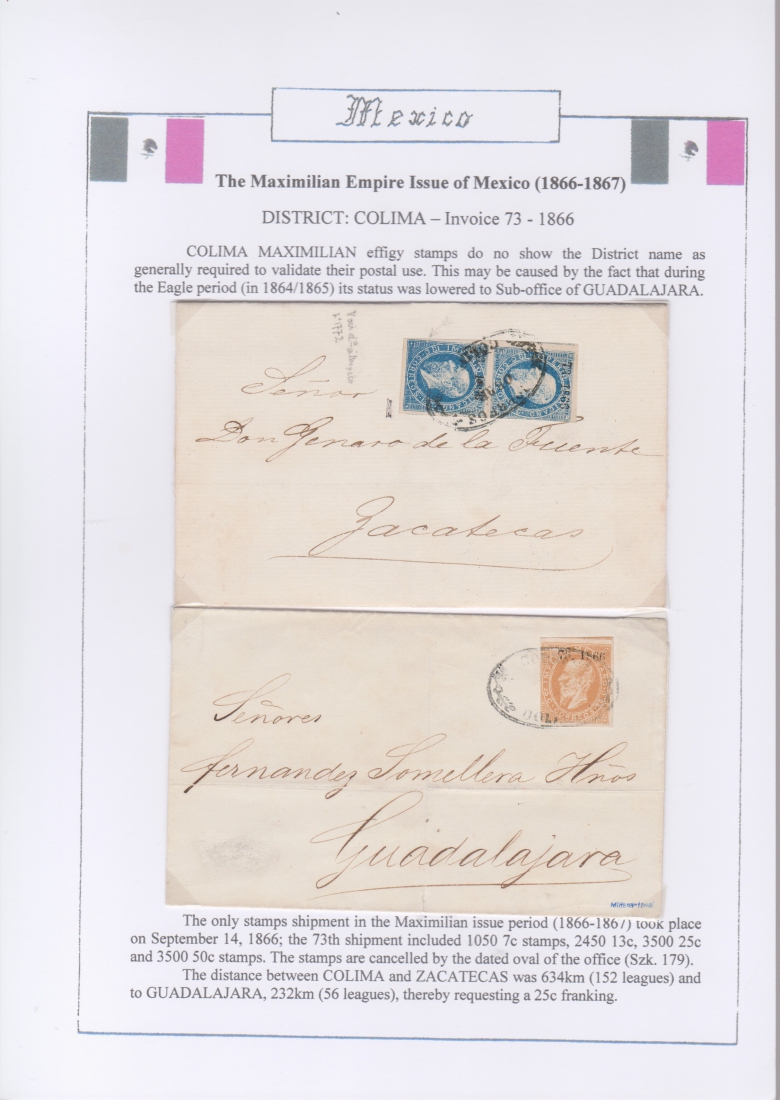 Mexico
The Maximilian Empire Issue of Mexico (1866-1867)
DISTRICT: COLIMA – Invoice 73 - 1866
COLIMA MAXIMILIAN effigy stamps do no show the District name as
generally required to validate their postal use. This may be caused by the fact that during
the Eagle period (in 1864/1865) its status was lowered to Sub-office of GUADALAJARA.
Señor
Don Genaro de la Fuente
Zacatecas
73 1866
Señores
Fernandez Somellera Hnos
Guadalajara
The only stamps shipment in the Maximilian issue period (1866-1867) took place
on September 14, 1866; the 73th shipment included 1050 7c stamps, 2450 13c, 3500 25c
and 3500 50c stamps. The stamps are cancelled by the dated oval of the office (Szk. 179).
The distance between COLIMA and ZACATECAS was 634km (152 leagues) and
to GUADALAJARA, 232km (56 leagues), thereby requesting a 25c franking.